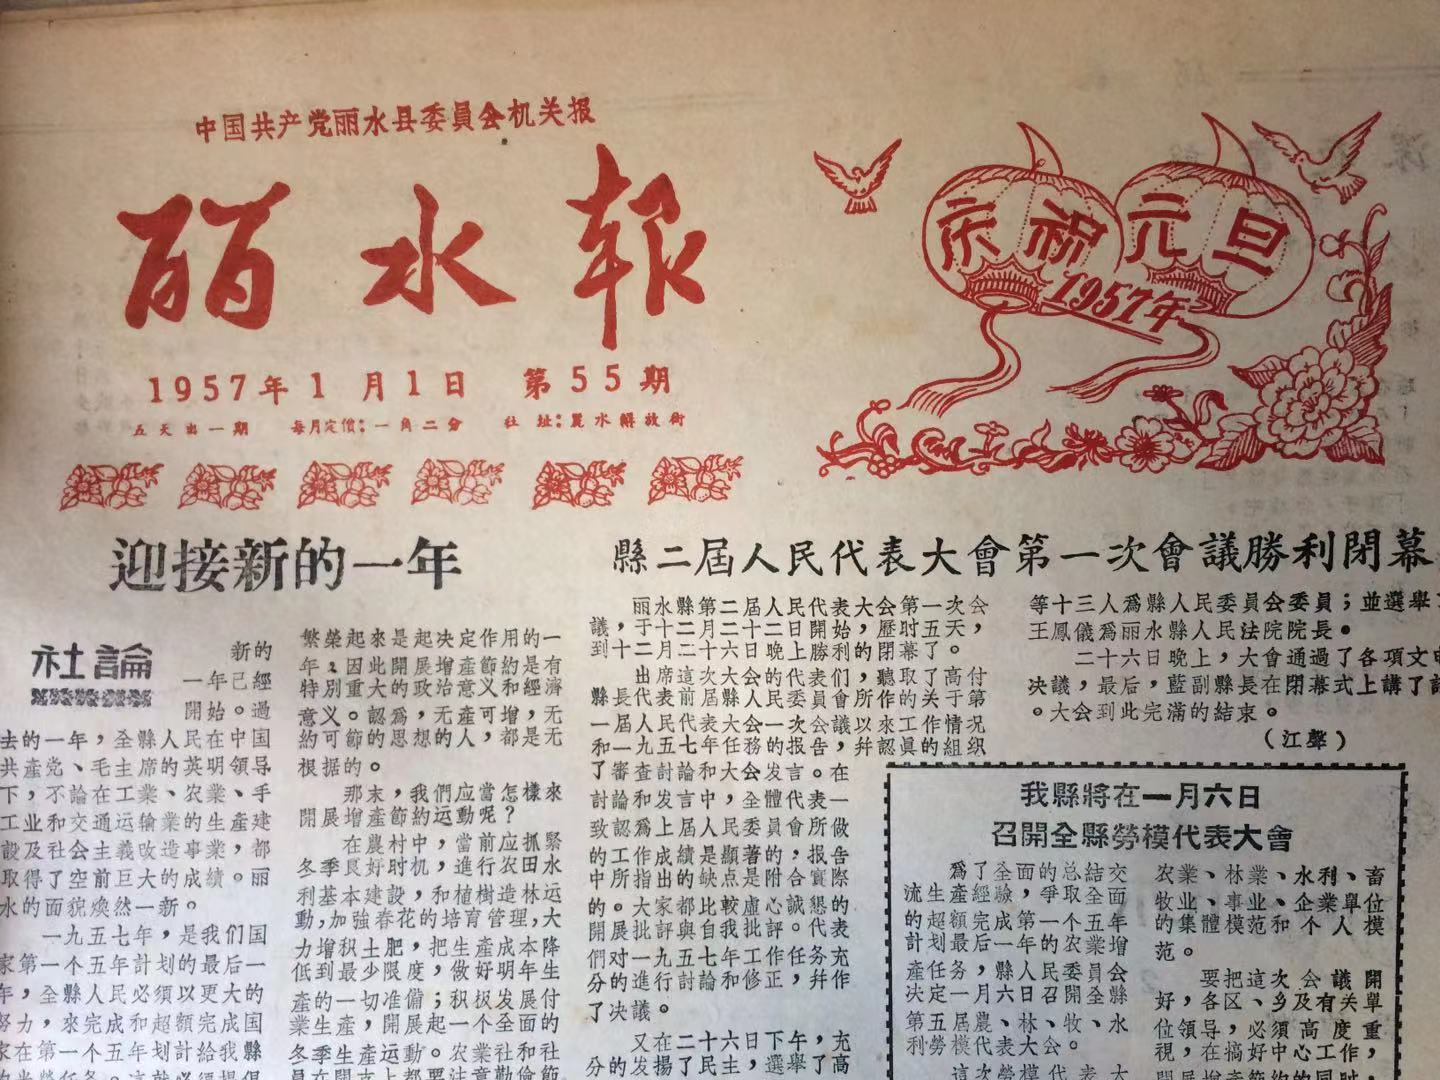 中国共产党丽水县委員会机关报
丽水報
1957年1月1日 第55期
五天出一期 每月定價：一角二分 社址：麗水解放街
庆祝元旦
1957年
迎接新的一年
社論
新的
一年已經
開始。过
去的一年，全縣人民在中国
共產党、毛主席的英明領导
下，不論在工業、农業、手
工业和交通运输業的生產建
設及社会主義改造事業，都
取得了空前巨大的成績。丽
水的面貌煥然一新。
一九五七年，是我们国
家第一个五年計划的最后一
年，全縣人民必須以更大的
努力，來完成和超額完成国
家在第一个五年划計給我縣
繁荣起來是起决定作用的一
年。因此開展增產節約是有
特別重大的政治意义和經濟
意义。認為，无產可增，无
約可節的思想的人，都是无
根据的。
那末，我們应當怎樣來
開展增產節約运動呢？
在農村中，當前应抓緊
冬季良好时机，進行农田水
利基本建設，和植樹造林运
動，加強春花的培育管理，大
力增积土肥，把生產成本降
低到最少限度，做好明年生
產的一切准備；积极发展付
業生產，開展起一个全面的
冬季生產运動。农業社和社
員在開支上都要注意勤儉節
縣二屆人民代表大會第一次會議勝利閉幕
丽水縣第二屆人民代表大会第一次会
議，于十二月二十二日開始，歷时五天，
到十二月二十六日晚上勝利的閉幕了。
出席這次大会的代表们，聽取了高付
縣長代表前屆縣人民委員會所作的关于第
一屆人民代表大会一次会議，以來工作情况
和一九五七年任務的报告，幷認眞的組织
了審查討論和大会发言。在
討論和发言中，全體代表一
致認爲上屆人民委員會所做
的工作成績是顯著的，报告
中所指出的缺点是附合實際
的。大家都比較虛心誠懇的
開展批評與自我批評。代表
們对一九五七年工作任务充
分的進行討論和修正，幷作
了决議。
又在二十六日下午，充
分的发揚了民主，選舉了高
等十三人爲縣人民委員会委員；並選舉
王鳳儀爲丽水縣人民法院院長。
二十六日晚上，大會通過了各項文
决議，最后，藍副縣長在閉幕式上講了
。大会到此完滿的結束。
（江聲）
我縣將在一月六日
召開全縣勞模代表大會
爲了全面的总結交
流生產經驗，爭取全面
的超額完成第一个五年
計划最后一年的农業增
產任务，縣人民委員会
决定一月六日召開全縣
第五屆農、林、牧、水
利勞模代表大会。
這次勞模代表大
农業、林業、水利、畜
牧业、事业、企業單位
的集體模范和个人模
范。
要把這次会議開
好，各区、乡及有关單
位領导，必須高度重
視，在搞好中心工作，
開展增產節約的同时，